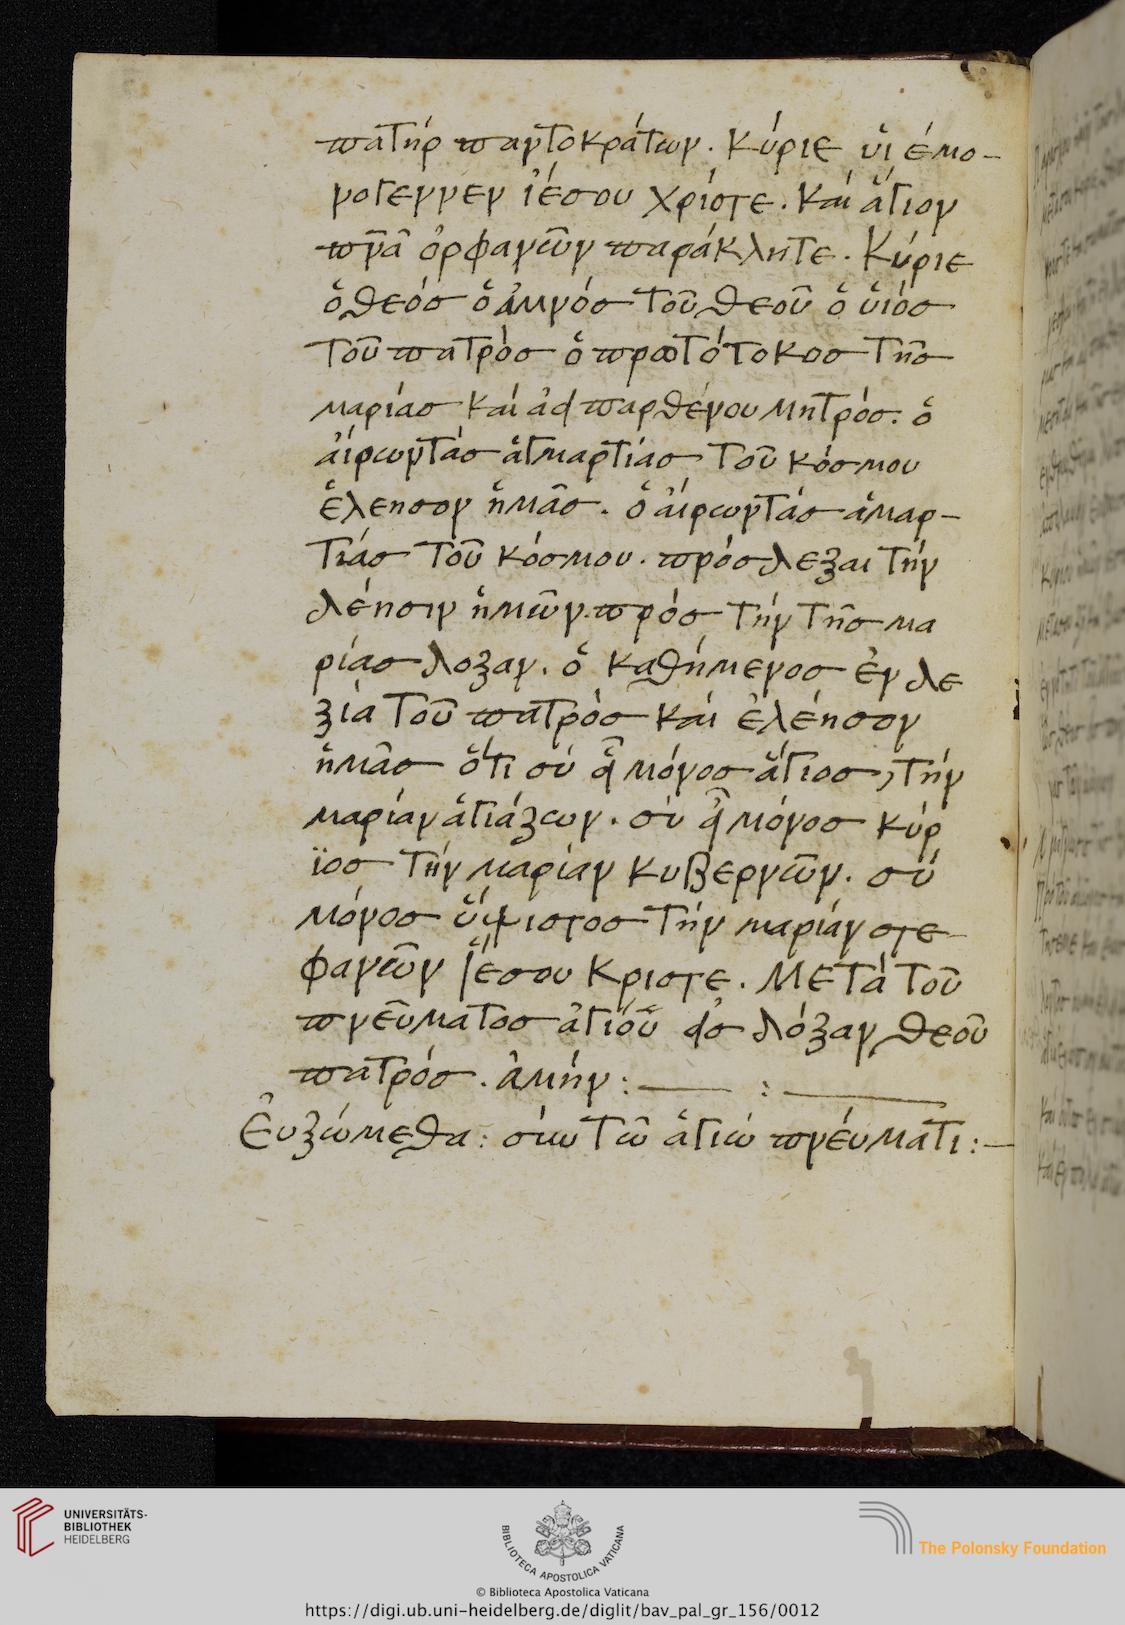 πατήρ παντοκράτων. Κύριε ὑι έμο-
νογεννεν ἰέσου χρίστε. Καί ἅγιον
πνα ὀρφανῶν παράκλητε. Κύριε
ὁ θεόσ ὁ ἀμνόσ τοῦ θεοῦ ὁ ὑιόσ
τοῦ πατρόσ ὁ πρωτότοκοσ τῆσ
μαρίασ καί ἀφ παρθένου μητρόσ. ὁ
ἀίρωντάσ ἁγμαρτιάσ τοῦ κόσμου
ἐλεησον ἡμᾶσ. ὁ ἀίρωντάσ ἁμαρ-
τιάσ τοῦ κόσμου. πρόσδεξαι τήν
δέησιν ἡμῶν. πρόσ τήν τῆσ μα
ρίασ δοξαν. ὁ καθήμενοσ ἐν δε
ξία τοῦ πατρόσ καί ἐλέησον
ἡμᾶσ ὅτι σύ μόνοσ ἅγιοσ, τήν
μαρίαν ἁγιάζων. σύ μόνοσ κύρ
ϊοσ τήν μαρίαν κυβερνῶν. σύ
μόνοσ ὕψιστοσ τήν μαριάν στε
φανῶν ἰέσου Κριστε. Μετά τοῦ
πνεῦματοσ ἁγιόῦ δόξαν θεοῦ
πατρόσ. ἀμήν: :
Ἐυξώμεθα: σύν τῶ ἁγιώ πνέυματι:-
UNIVERSITÄTS-
BIBLIOTHEK
HEIDELBERG
BIBLIOTECA APOSTOLICA VATICANA
The Polonsky Foundation
© Biblioteca Apostolica Vaticana
https://digi.ub.uni-heidelberg.de/diglit/bav_pal_gr_156/0012